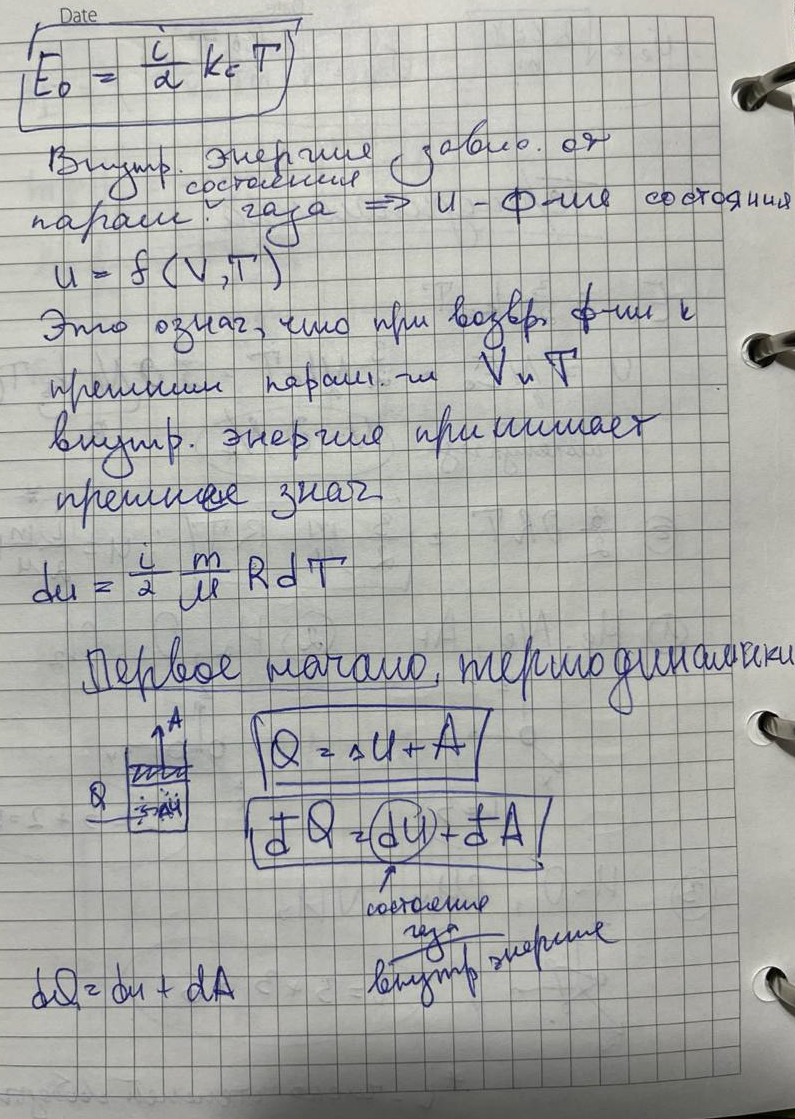 Date
E₀ = i/2 k₆ T
Внутр. энергия завис. от
состояния
парам. газа => U - ф-ия состояния
U = f (V, T)
Это означ, что при возвр. ф-ии к
прежним парам.-м V и T
внутр. энергия принимает
прежнее знач
du = i/2 m/μ R d T
Первое начало, термодинамики
A
Q = ΔU + A
Q
ΔU
đQ = dU + đA
состояние
газа
внутр энергия
dQ = du + dA